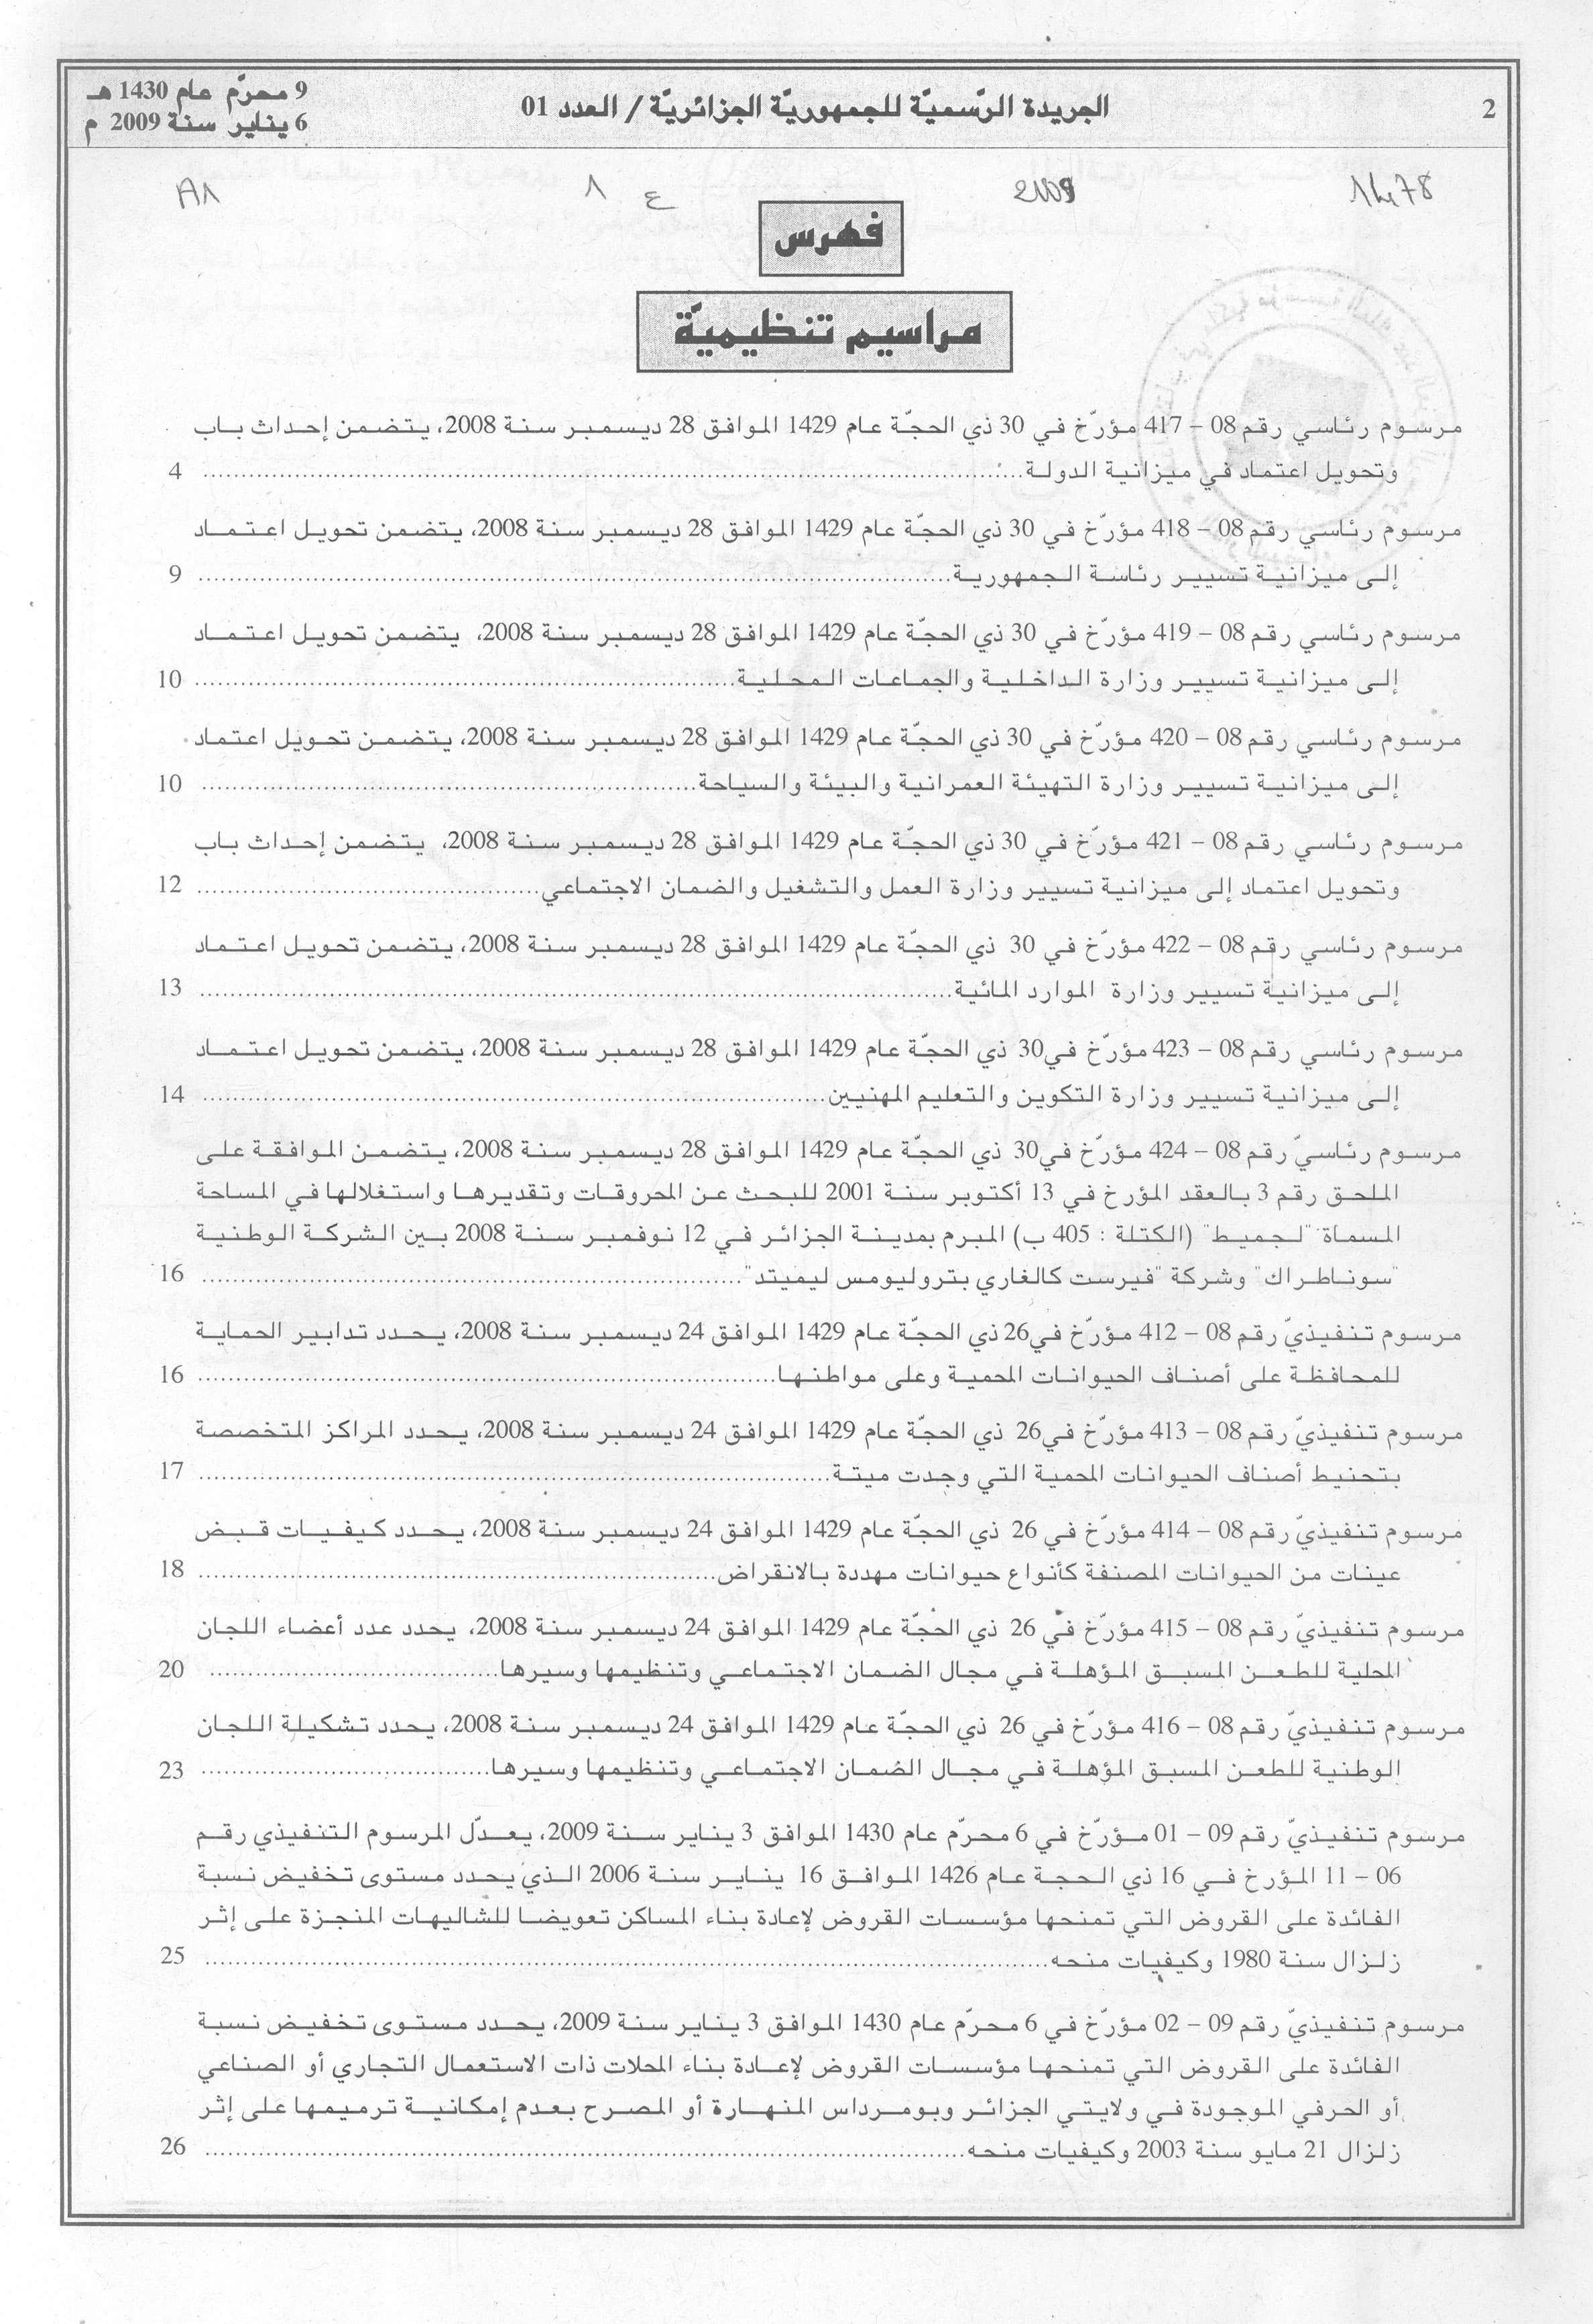 2
الجريدة الرّسميّة للجمهوريّة الجزائريّة / العدد 01
9 محرّم عام 1430 هـ
6 يناير سنة 2009 م
1478
2009
ع 1
A1
فهرس
مراسيم تنظيميّة
مرسوم رئاسي رقم 08 – 417 مؤرّخ في 30 ذي الحجّة عام 1429 الموافق 28 ديسمبر سنة 2008، يتضمن إحداث باب
وتحويل اعتماد في ميزانية الدولة.................... 4
مرسوم رئاسي رقم 08 – 418 مؤرّخ في 30 ذي الحجّة عام 1429 الموافق 28 ديسمبر سنة 2008، يتضمن تحويل اعتماد
إلى ميزانية تسيير رئاسة الجمهورية.................... 9
مرسوم رئاسي رقم 08 – 419 مؤرّخ في 30 ذي الحجّة عام 1429 الموافق 28 ديسمبر سنة 2008، يتضمن تحويل اعتماد
إلى ميزانية تسيير وزارة الداخلية والجماعات المحلية.................... 10
مرسوم رئاسي رقم 08 – 420 مؤرّخ في 30 ذي الحجّة عام 1429 الموافق 28 ديسمبر سنة 2008، يتضمن تحويل اعتماد
إلى ميزانية تسيير وزارة التهيئة العمرانية والبيئة والسياحة.................... 10
مرسوم رئاسي رقم 08 – 421 مؤرّخ في 30 ذي الحجّة عام 1429 الموافق 28 ديسمبر سنة 2008، يتضمن إحداث باب
وتحويل اعتماد إلى ميزانية تسيير وزارة العمل والتشغيل والضمان الاجتماعي.................... 12
مرسوم رئاسي رقم 08 – 422 مؤرّخ في 30 ذي الحجّة عام 1429 الموافق 28 ديسمبر سنة 2008، يتضمن تحويل اعتماد
إلى ميزانية تسيير وزارة الموارد المائية.................... 13
مرسوم رئاسي رقم 08 – 423 مؤرّخ في30 ذي الحجّة عام 1429 الموافق 28 ديسمبر سنة 2008، يتضمن تحويل اعتماد
إلى ميزانية تسيير وزارة التكوين والتعليم المهنيين.................... 14
مرسوم رئاسيّ رقم 08 – 424 مؤرّخ في30 ذي الحجّة عام 1429 الموافق 28 ديسمبر سنة 2008، يتضمن الموافقة على
الملحق رقم 3 بالعقد المؤرخ في 13 أكتوبر سنة 2001 للبحث عن المحروقات وتقديرها واستغلالها في المساحة
المسماة "لجميط" (الكتلة : 405 ب) المبرم بمدينة الجزائر في 12 نوفمبر سنة 2008 بين الشركة الوطنية
"سوناطراك" وشركة "فيرست كالغاري بتروليومس ليميتد".................... 16
مرسوم تنفيذيّ رقم 08 – 412 مؤرّخ في26 ذي الحجّة عام 1429 الموافق 24 ديسمبر سنة 2008، يحدد تدابير الحماية
للمحافظة على أصناف الحيوانات المحمية وعلى مواطنها.................... 16
مرسوم تنفيذيّ رقم 08 – 413 مؤرّخ في26 ذي الحجّة عام 1429 الموافق 24 ديسمبر سنة 2008، يحدد المراكز المتخصصة
بتحنيط أصناف الحيوانات المحمية التي وجدت ميتة.................... 17
مرسوم تنفيذيّ رقم 08 – 414 مؤرّخ في 26 ذي الحجّة عام 1429 الموافق 24 ديسمبر سنة 2008، يحدد كيفيات قبض
عينات من الحيوانات المصنفة كأنواع حيوانات مهددة بالانقراض.................... 18
مرسوم تنفيذيّ رقم 08 – 415 مؤرّخ في 26 ذي الحجّة عام 1429 الموافق 24 ديسمبر سنة 2008، يحدد عدد أعضاء اللجان
المحلية للطعن المسبق المؤهلة في مجال الضمان الاجتماعي وتنظيمها وسيرها.................... 20
مرسوم تنفيذيّ رقم 08 – 416 مؤرّخ في 26 ذي الحجّة عام 1429 الموافق 24 ديسمبر سنة 2008، يحدد تشكيلة اللجان
الوطنية للطعن المسبق المؤهلة في مجال الضمان الاجتماعي وتنظيمها وسيرها.................... 23
مرسوم تنفيذيّ رقم 09 – 01 مؤرّخ في 6 محرّم عام 1430 الموافق 3 يناير سنة 2009، يعدّل المرسوم التنفيذي رقم
06 – 11 المؤرخ في 16 ذي الحجة عام 1426 الموافق 16 يناير سنة 2006 الذي يحدد مستوى تخفيض نسبة
الفائدة على القروض التي تمنحها مؤسسات القروض لإعادة بناء المساكن تعويضا للشاليهات المنجزة على إثر
زلزال سنة 1980 وكيفيات منحه.................... 25
مرسوم تنفيذيّ رقم 09 – 02 مؤرّخ في 6 محرّم عام 1430 الموافق 3 يناير سنة 2009، يحدد مستوى تخفيض نسبة
الفائدة على القروض التي تمنحها مؤسسات القروض لإعادة بناء المحلات ذات الاستعمال التجاري أو الصناعي
أو الحرفي الموجودة في ولايتي الجزائر وبومرداس المنهارة أو المصرح بعدم إمكانية ترميمها على إثر
زلزال 21 مايو سنة 2003 وكيفيات منحه.................... 26